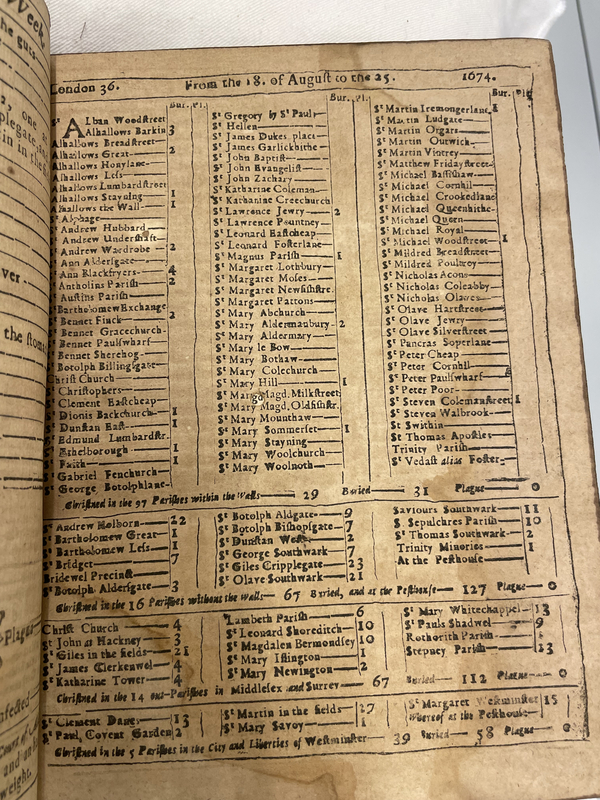 London 36. From the 18. of August to the 25. 1674.
Bur. Pl.
St ALban Woodstreet
Alhallows Barkin 3
Alhallows Breadstreet
Alhallows Great 2
Alhallows Honylane
Alhallows Less
Alhallows Lumbardstreet
Alhallows Stayning 1
Alhallows the Wall 1
St Alphage
St Andrew Hubbard
St Andrew Undershaft
St Andrew Wardrobe 2
St Ann Aldersgate
St Ann Blackfryers 4
St Antholins Parish 2
St Austins Parish
St Bartholomew Exchange
St Bennet Finck 2
St Bennet Gracechurch
St Bennet Paulswharf
St Bennet Sherehog
St Botolph Billingsgate
Christ Church
St Christophers
St Clement Eastcheap
St Dionis Backchurch 1
St Dunstan East 1
St Edmund Lumbardstr.
St Ethelborough 1
St Faith 1
St Gabriel Fenchurch
St George Botolphlane
Bur. Pl.
St Gregory by St Pauls
St Hellen
St James Dukes place
St James Garlickhithe
St John Baptist
St John Evangelist
St John Zachary
St Katharine Coleman
St Katharine Creechurch
St Lawrence Jewry 2
St Lawrence Pountney
St Leonard Eastcheap
St Leonard Fosterlane
St Magnus Parish 1
St Margaret Lothbury
St Margaret Moses
St Margaret Newfishstre.
St Margaret Pattons
St Mary Abchurch
St Mary Aldermanbury 2
St Mary Aldermary
St Mary le Bow
St Mary Bothaw
St Mary Colechurch
St Mary Hill 1
St Mary Magd. Milkstreet
St Mary Magd. Oldfishstr.
St Mary Mounthaw
St Mary Somerset 1
St Mary Stayning
St Mary Woolchurch
St Mary Woolnoth
Bur. Plg
St Martin Iremongerlane 1
St Martin Ludgate
St Martin Orgars
St Martin Outwich
St Martin Vintrey
St Matthew Fridaystreet
St Michael Bassishaw
St Michael Cornhil
St Michael Crookedlane
St Michael Queenhithe
St Michael Quern
St Michael Royal
St Michael Woodstreet 1
St Mildred Breadstreet
St Mildred Poultrey
St Nicholas Acons
St Nicholas Coleabby
St Nicholas Olaves
St Olave Hartstreet
St Olave Jewry
St Olave Silverstreet
St Pancras Soperlane
St Peter Cheap
St Peter Cornhil
St Peter Paulswharf
St Peter Poor
St Steven Colemanstreet 1
St Steven Walbrook
St Swithin
St Thomas Apostles
Trinity Parish
St Vedast alias Foster
Christned in the 97 Parishes within the Walls 29 Buried 31 Plague 0
St Andrew Holborn 22
St Bartholomew Great 1
St Bartholomew Less 1
St Bridget 7
Bridewel Precinct
St Botolph Aldersgate 3
St Botolph Aldgate 9
St Botolph Bishopsgate 7
St Dunstan West 2
St George Southwark 7
St Giles Cripplegate 23
St Olave Southwark 21
Saviours Southwark 11
S. Sepulchres Parish 10
St Thomas Southwark 2
Trinity Minories 1
At the Pesthouse
Christned in the 16 Parishes without the Walls 67 Buried, and at the Pesthouse 127 Plague 0
Christ Church 4
St John at Hackney 3
St Giles in the fields 21
St James Clerkenwel 4
St Katharine Tower 4
Lambeth Parish 6
St Leonard Shoreditch 10
St Magdalen Bermondsey 10
St Mary Islington 1
St Mary Newington 2
St Mary Whitechappel 13
St Pauls Shadwel 9
Rothorith Parish
Stepney Parish
Christned in the 14 out-Parishes in Middlesex and Surrey 67 Buried 112 Plague 0
St Clement Danes 13
St Paul, Covent Garden 2
St Martin in the fields 27
St Mary Savoy 1
St Margaret Westminster 15
Whereof at the Pesthouse
Christned in the 5 Parishes in the City and Liberties of Westminster 39 Buried 58 Plague 0